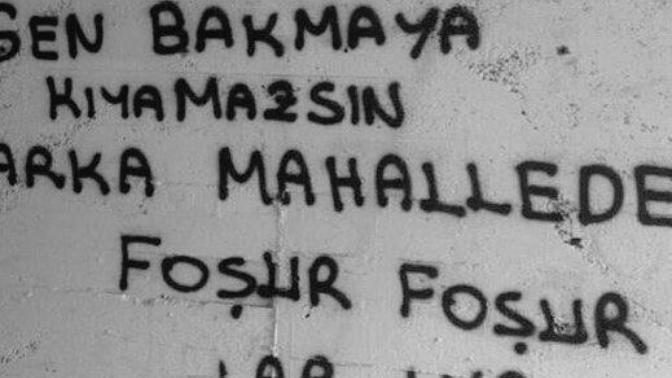 SEN BAKMAYA
KIYAMAZSIN
ARKA MAHALLEDE
FOŞUR FOŞUR